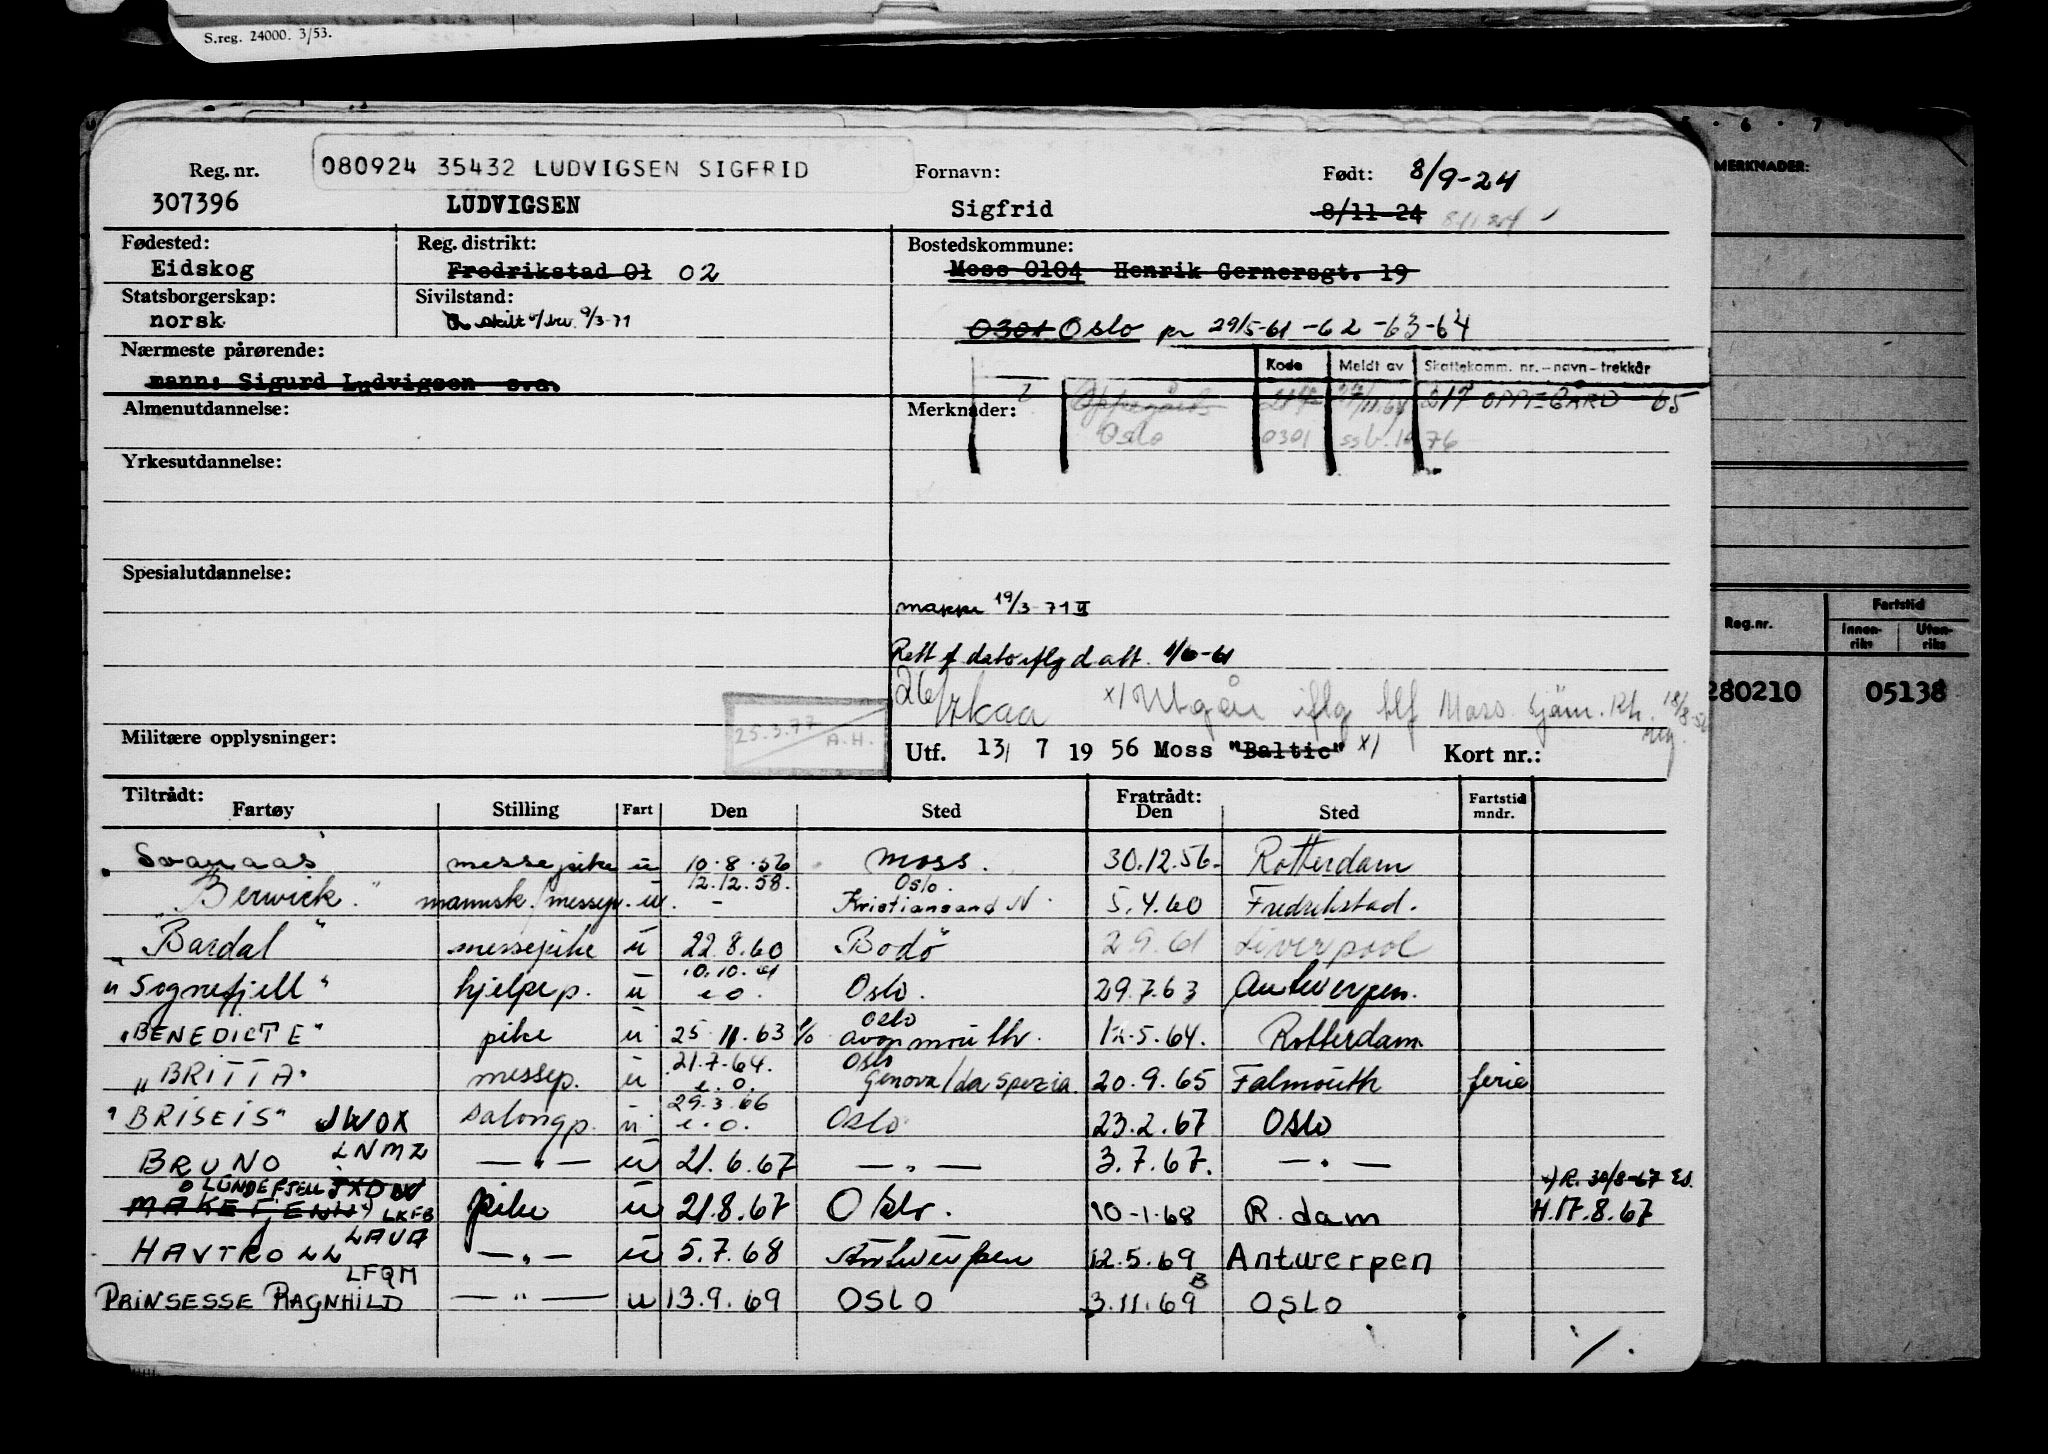 S.reg. 24000. 3/53.
5 · 6 · 7 ·
MERKNADER:
Reg. nr. 080924 35432 LUDVIGSEN SIGFRID Fornavn: Født: 8/9-24
307396 LUDVIGSEN Sigfrid 8/11-24
Fødested: Reg. distrikt: Bostedskommune:
Eidskog Fredrikstad 01 02 Moss 0104 Henrik Gernersgt. 19
Statsborgerskap: Sivilstand:
norsk skilt 9/3-71 0301 Oslo pr 29/5-61 -62 -63-64
Nærmeste pårørende: Kode Meldt av Skattekomm. nr. – navn – trekkår
mann: Sigurd Ludvigsen s.a.
Almenutdannelse: Merknader: Oppegård 217 OPPEGÅRD 65
Oslo 0301 76
Yrkesutdannelse:
Spesialutdannelse:
mappe 19/3-71
Reg.nr. Fartstid
Innen-riks Uten-riks
Rett f dato iflg d att. 1/6-61
280210 05138
x) Utgår iflg tlf Moss sjøm.
25.3.77
A.H.
Militære opplysninger: Utf. 13/ 7 19 56 Moss "Baltic" x) Kort nr.:
Tiltrådt: Fratrådt: Fartstid
Fartøy Stilling Fart Den Sted Den Sted mndr.
Svanaas messepike u 10.8.56 Moss. 30.12.56 Rotterdam
12.12.58. Oslo.
"Berwick" mannsk./messep. u. – Kristiansand N. 5.4.60 Fredrikstad.
"Bardal" messepike u 22.8.60 Bodø 2.9.61 Liverpool
10.10.61
"Sognefjell" hjelpep. u e.o. Oslo. 29.7.63 Antwerpen.
Oslo
"BENEDICTE" pike u 25.11.63 Avonmouth. 12.5.64. Rotterdam
21.7.64. Oslo
"BRITTA" messep. u e.o. Genova/La Spezia 20.9.65 Falmouth ferie
29.3.66
"BRISEIS" JWOX salongp. u e.o. Oslo 23.2.67 Oslo
BRUNO LNMZ — " — u 21.6.67 — " — 3.7.67. — " —
LUNDEFJELL x) R. 30/8-67
LKFB pike u 21.8.67 Oslo. 10-1-68 R.dam H.17.8.67
HAVTROLL LAVA — " — u 5.7.68 Antwerpen 12.5.69 Antwerpen
LFQM B
PRINSESSE RAGNHILD — " — u 13.9.69 OSLO 3.11.69 OSLO